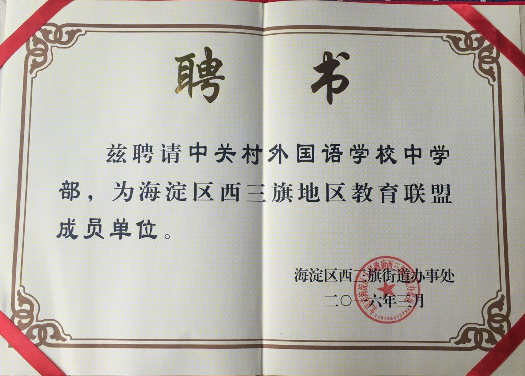 聘 书
兹聘请中关村外国语学校中学
部，为海淀区西三旗地区教育联盟
成员单位。
海淀区西三旗街道办事处
二〇一六年三月